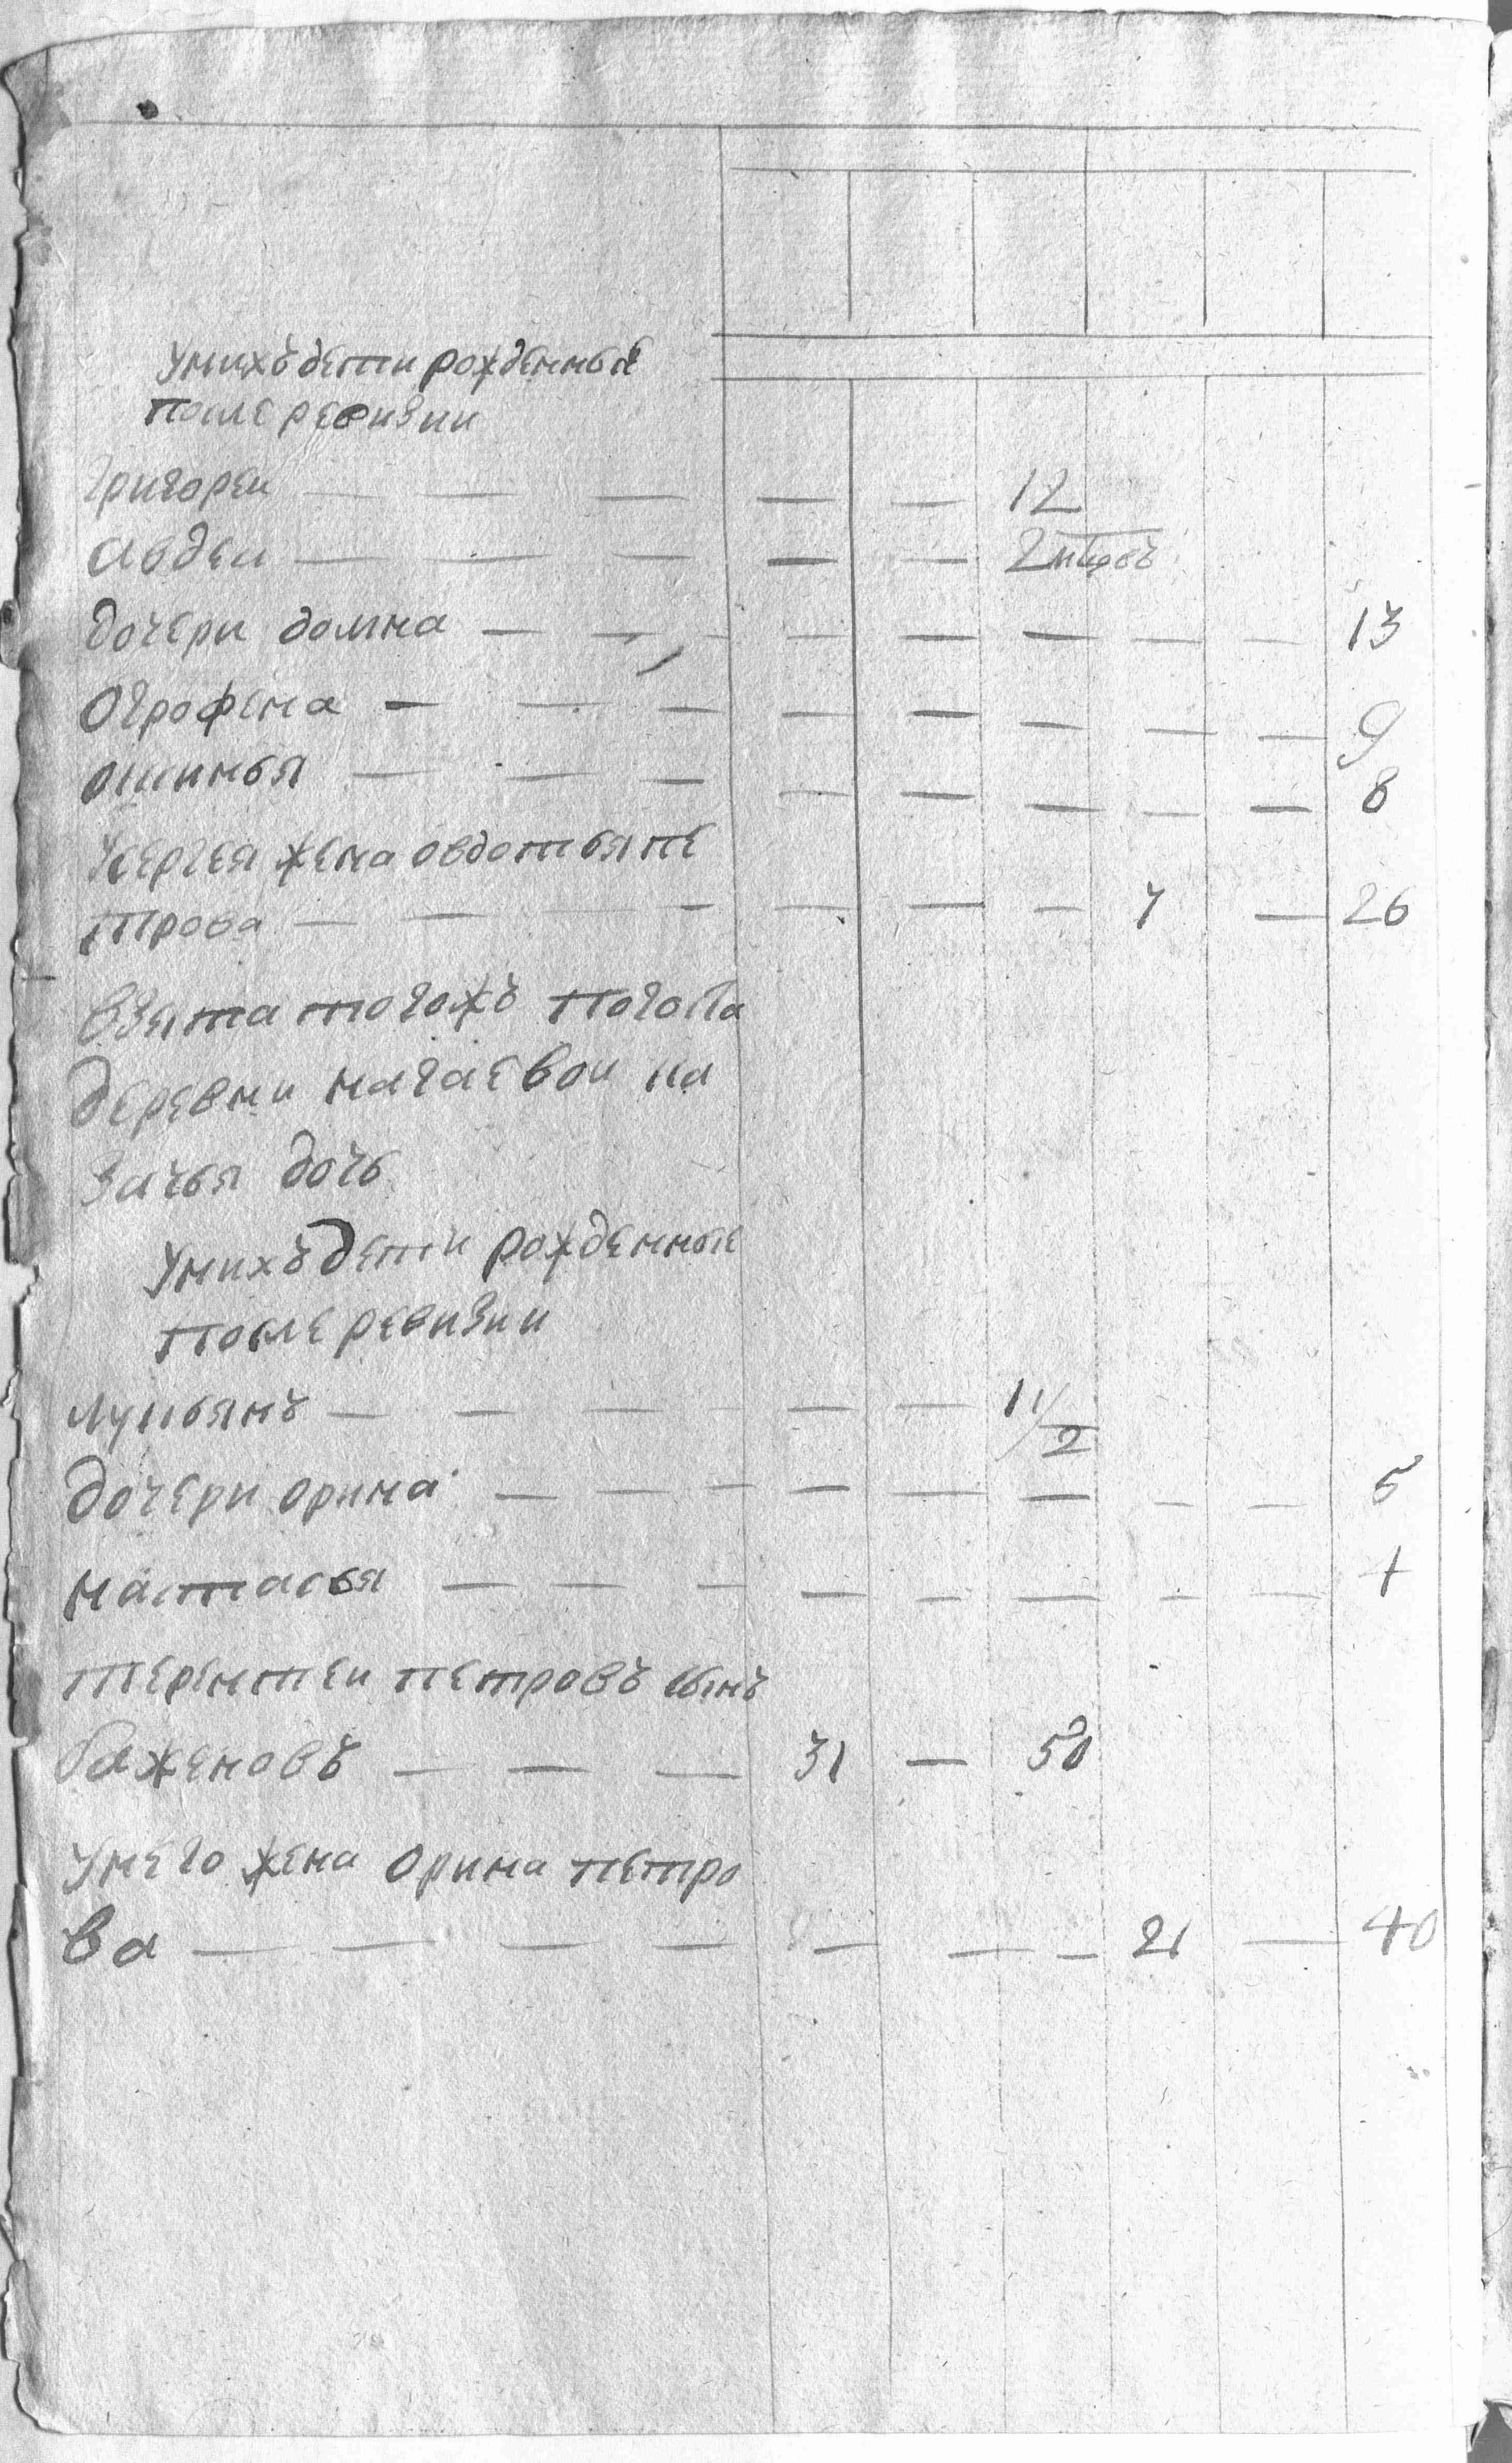 Унихъ дети рожденные
после ревизии
Григореи — — — — — 12
Авдеи — — — — — 2 мцовъ
дочери домна — — — — — — — — 13
Огрофена — — — — — — — — 9
— — — — — — — — 8
Усергея жена овдотья пе
трова — — — — — — — 7 — 26
Взята тогожъ погоста
деревни на
зачья дочь
Унихъ дети рожденные
после ревизии
лупьянъ — — — — — — 1 1/2
дочери орина — — — — — — — — 5
настасья — — — — — — — — 1
терентеи петровъ сынъ
баженовъ — — — 31 — 50
Унего жена орина петро
ва — — — — — — — 21 — 40